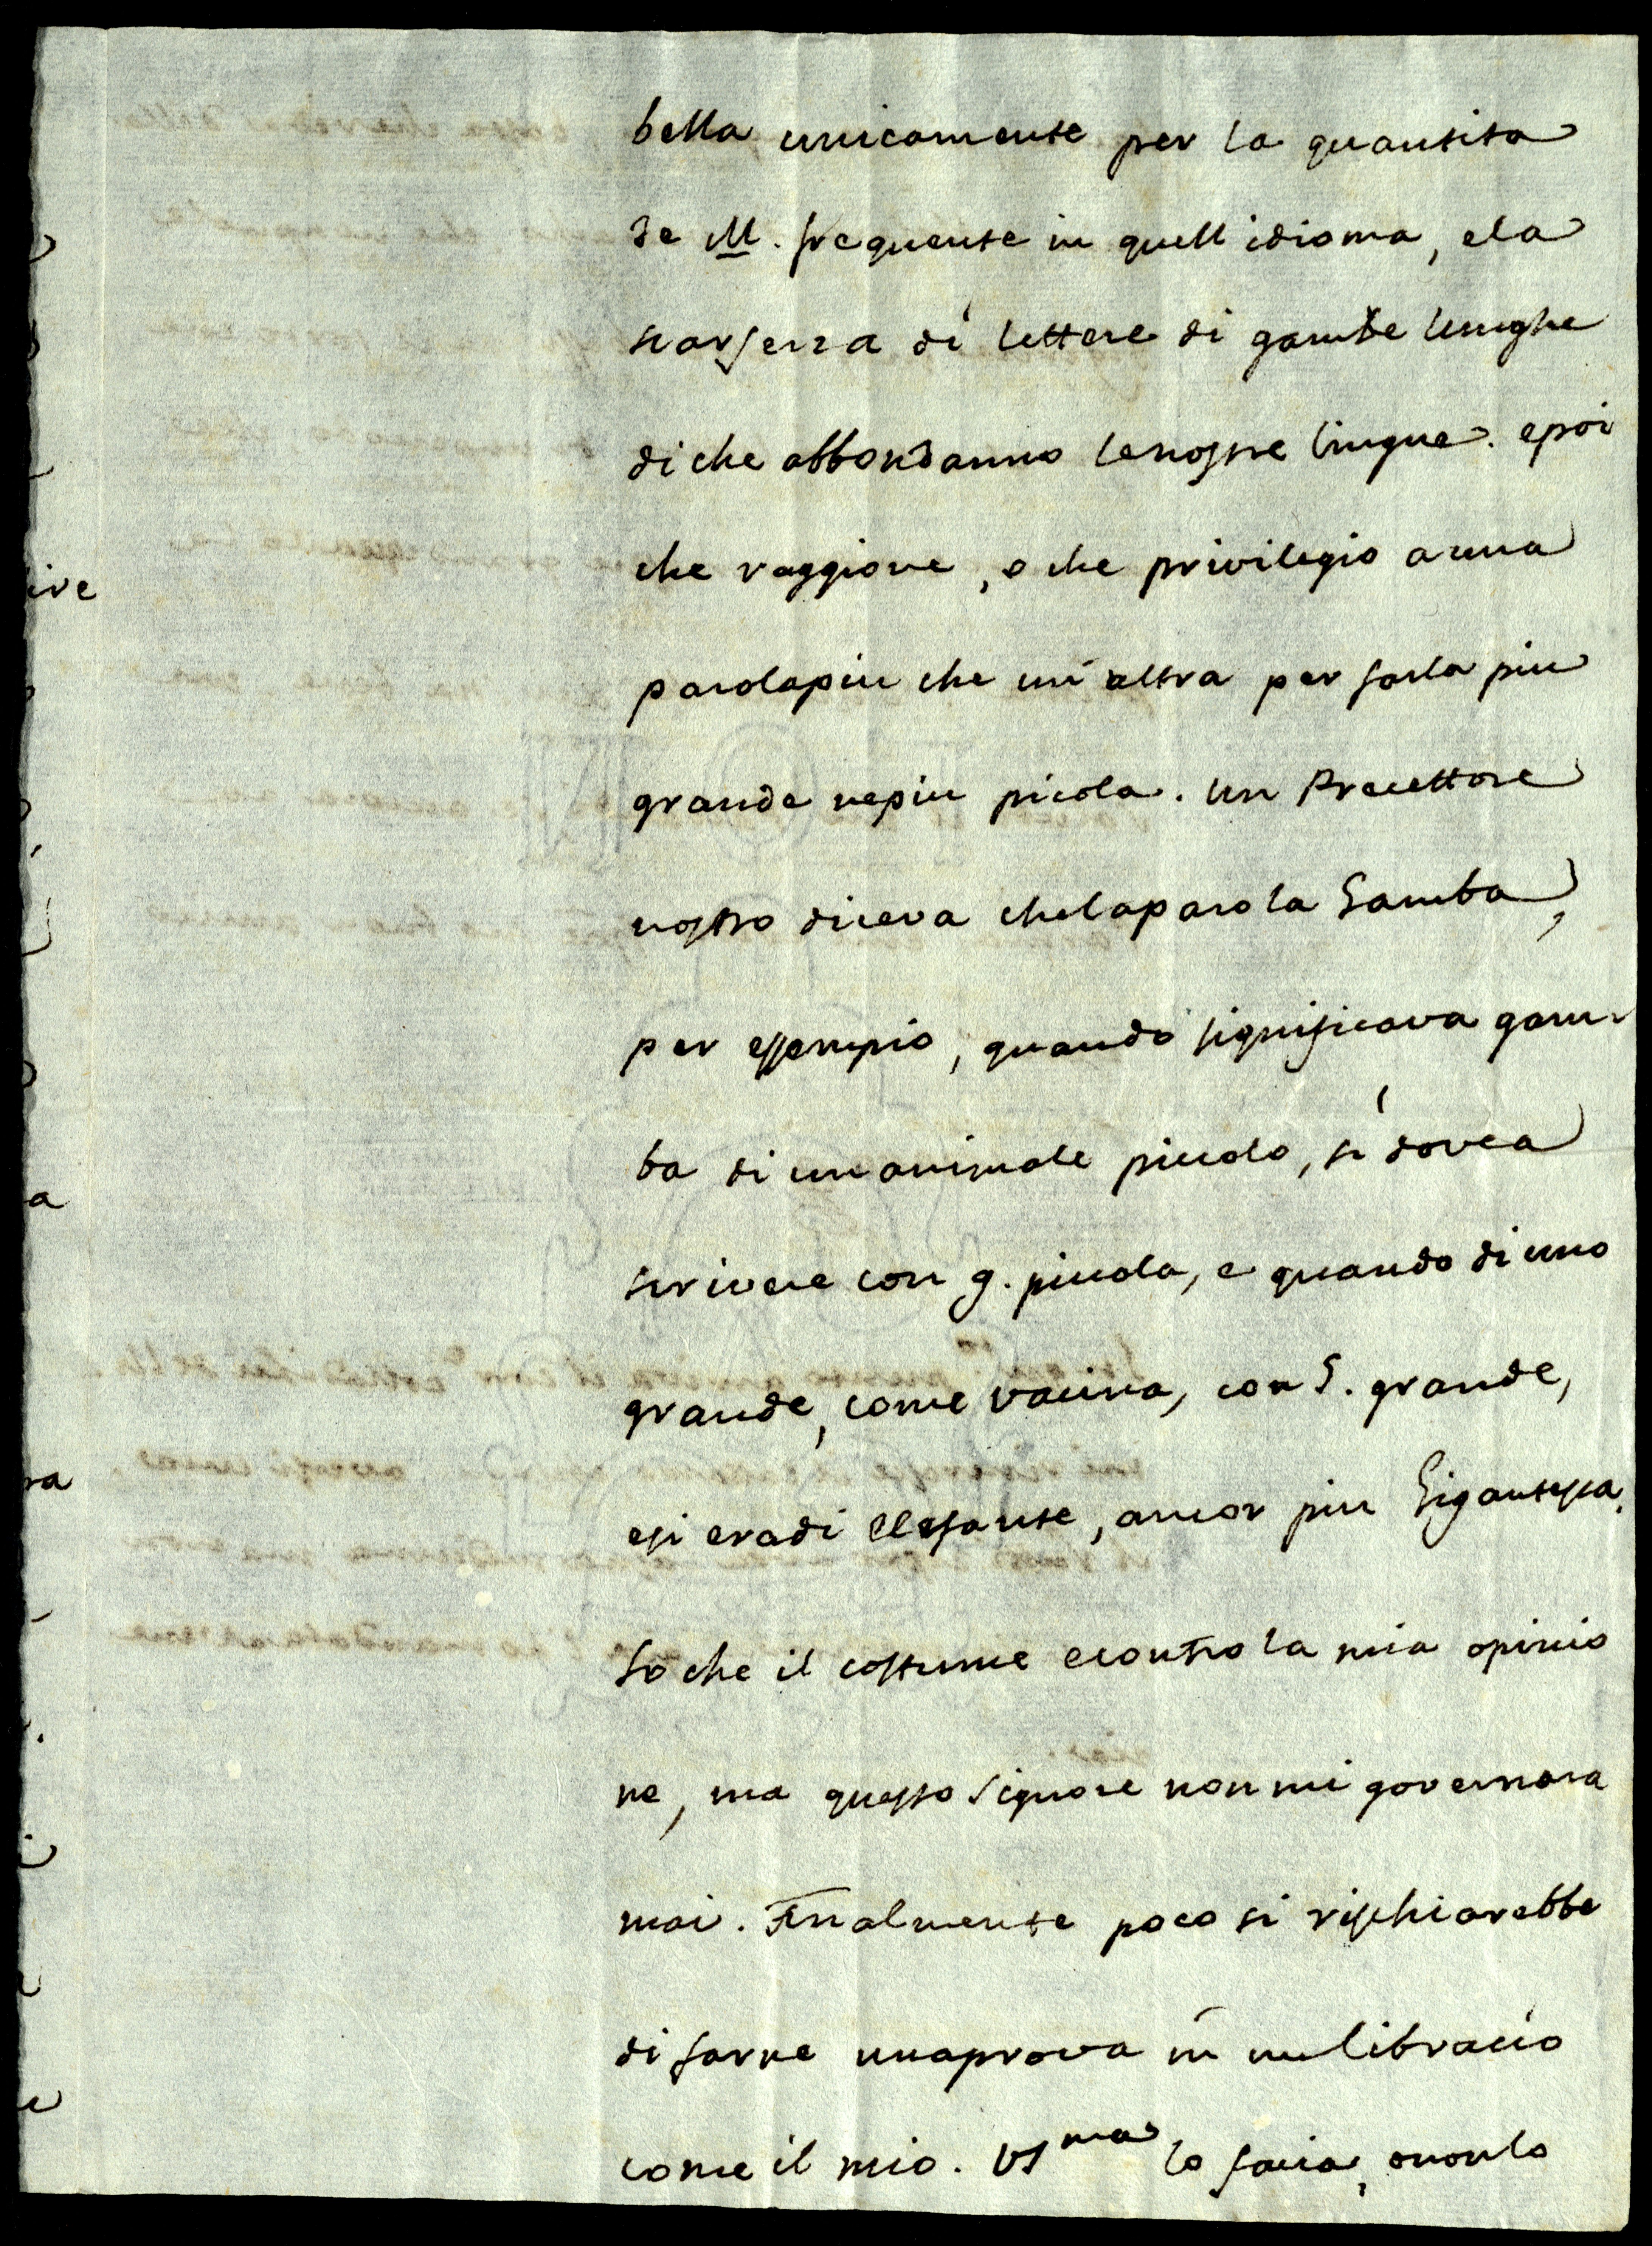 bella unicamente per la quantita
de M. frequente in quell idioma, ela
scarsezza di lettere di gambe lunghe
di che abbondanno lenostre lingue. epoi
che raggione, o che privilegio a una
parolapiu che un altra per farla piu
grande nepiu picola. Un Precettore
nostro diceva chelaparola Gamba,
per essempio, quando significava gam-
ba di un animale piccolo, si dovea
scrivere con g. picola, e quando di uno
grande, come vacina, con G. grande,
esi eradi elefante, ancor piu Gigantessa.
So che il costume econtro la mia opinio
ne, ma questo signore non mi governara
mai. Finalmente poco si rischiarebbe
di farne unaprova in un libracio
come il mio. VS ma lo facia, ononlo
ive
a
ra